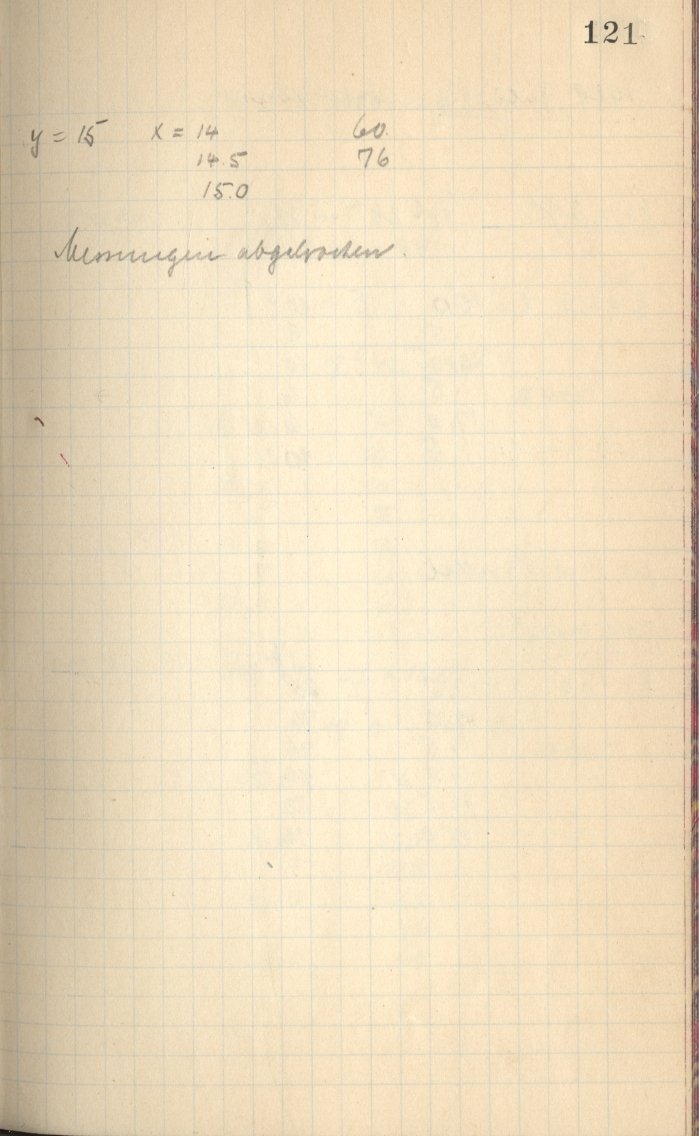 121
y = 15 x = 14 60
14.5 76
15.0
Messungen abgebrochen.